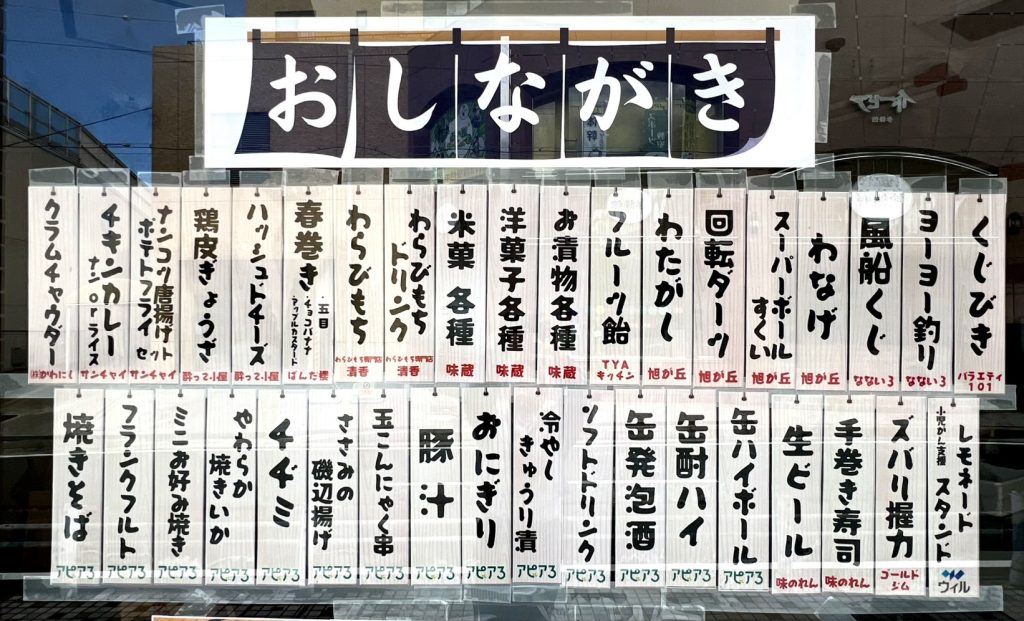 おしながき
くじびき
バラエティ
101
ヨーヨー釣り
なない3
風船くじ
なない3
わなげ
旭が丘
スーパーボール
すくい
旭が丘
回転ダーツ
旭が丘
わたがし
旭が丘
フルーツ飴
TYA
キッチン
お漬物各種
味蔵
洋菓子各種
味蔵
米菓 各種
味蔵
わらびもち
ドリンク
わらびもち専門店
清香
わらびもち
わらびもち専門店
清香
春巻き
・五目
・チョコバナナ
・アップルカスタード
ぱんだ樓
ハッシュドチーズ
酔って小屋
鶏皮ぎょうざ
酔って小屋
ナンコツ唐揚げ
ポテトフライ セット
サンチャイ
チキンカレー
ナンorライス
サンチャイ
クラムチャウダー
㈱かわにく
レモネード
スタンド
小児がん支援
ウィル
ズバリ握力
ゴールド
ジム
手巻き寿司
味のれん
生ビール
味のれん
缶ハイボール
アピア3
缶酎ハイ
アピア3
缶発泡酒
アピア3
ソフトドリンク
アピア3
冷やし
きゅうり漬
アピア3
おにぎり
アピア3
豚汁
アピア3
玉こんにゃく串
アピア3
ささみの
磯辺揚げ
アピア3
チヂミ
アピア3
やわらか
焼きいか
アピア3
ミニお好み焼き
アピア3
フランクフルト
アピア3
焼きそば
アピア3